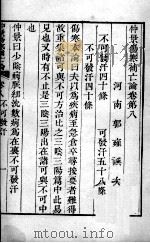 仲景傷寒補亡論卷第八
河南郭雍
不可發汗四十條　可發汗五十
不可發汗四十條
傷寒本論曰夫以為疾病至急倉卒尋按要者難得
故重集諸可與不可方治比之三陰三陽篇中此易
見也又時有不止是三陰三陽出在諸可與不可中也
仲景曰少陰病脈細沈數病為在裏不可發汗